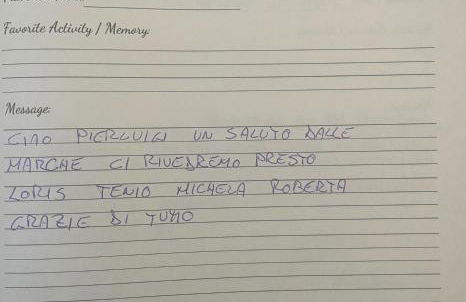 Favorite Activity / Memory:
Message:
CIAO PIERLUIGI UN SALUTO DALLE
MARCHE CI RIVEDREMO PRESTO
LORIS TENIO MICHELA ROBERTA
GRAZIE DI TUTTO